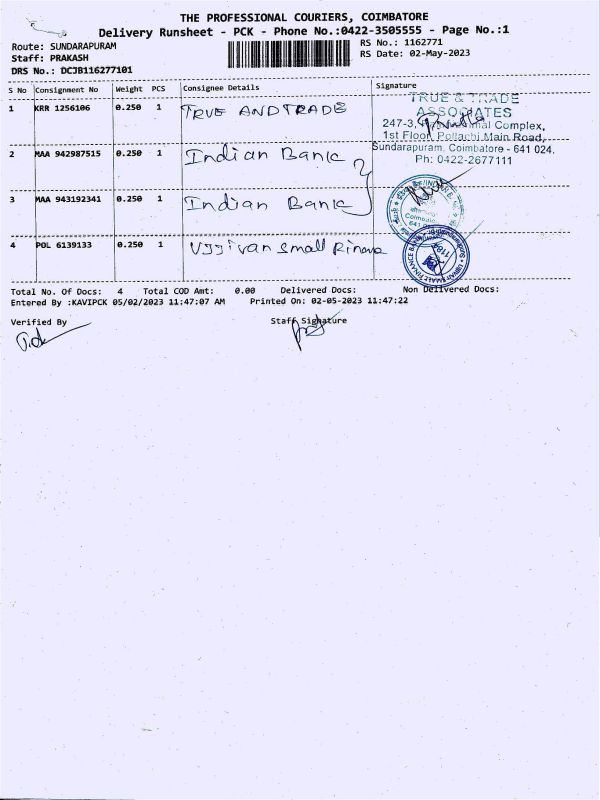 THE PROFESSIONAL COURIERS, COIMBATORE
Delivery Runsheet - PCK - Phone No.:0422-3505555 - Page No.:1
Route: SUNDARAPURAM
Staff: PRAKASH
DRS No.: DCJB116277101
RS No.: 1162771
RS Date: 02-May-2023
S No Consignment No Weight PCS Consignee Details Signature
1 KRR 1256106 0.250 1 TRUE AND TRADE
TRUE & TRADE
ASSOCIATES
247-3, Complex,
1st Floor, Pollachi Main Road,
Sundarapuram, Coimbatore - 641 024.
Ph: 0422-2677111
2 MAA 942987515 0.250 1 Indian Bank
3 MAA 943192341 0.250 1 Indian Bank
4 POL 6139133 0.250 1 Ujjivan small Finava
Total No. Of Docs: 4 Total COD Amt: 0.00 Delivered Docs: Non Delivered Docs:
Entered By :KAVIPCK 05/02/2023 11:47:07 AM Printed On: 02-05-2023 11:47:22
Verified By Staff Signature